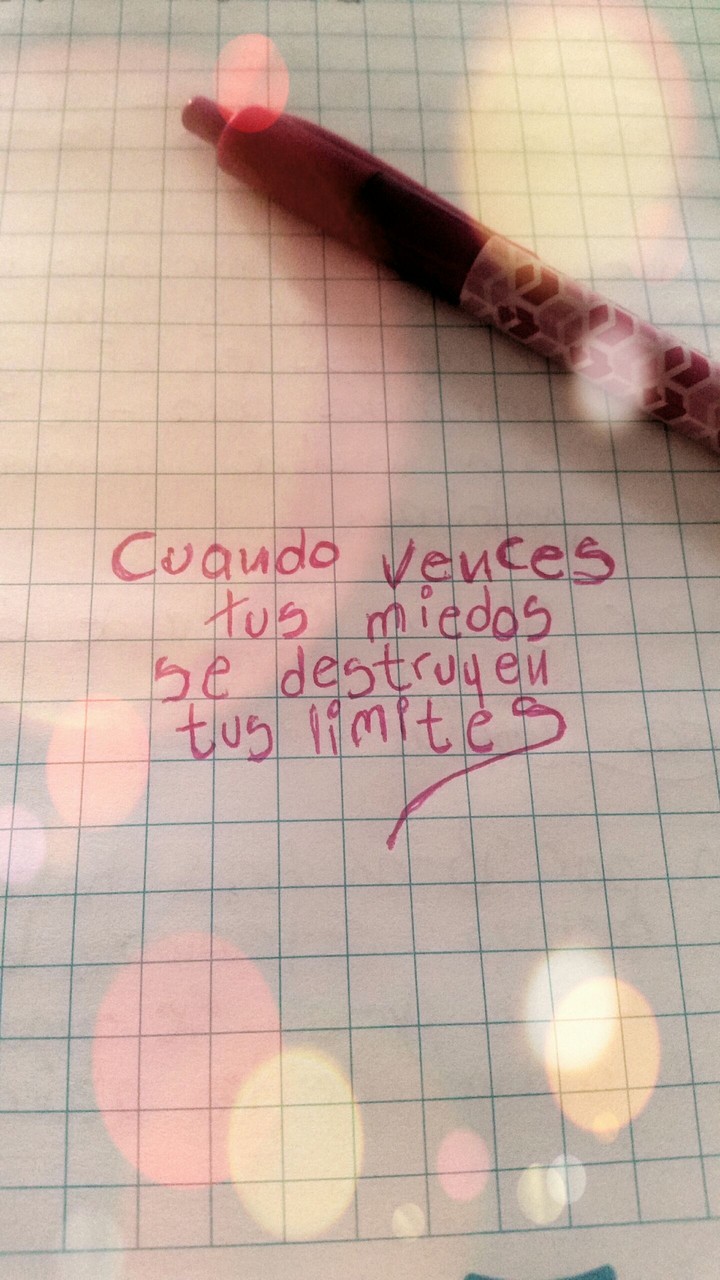 Cuando vences
tus miedos
se destruyen
tus limites